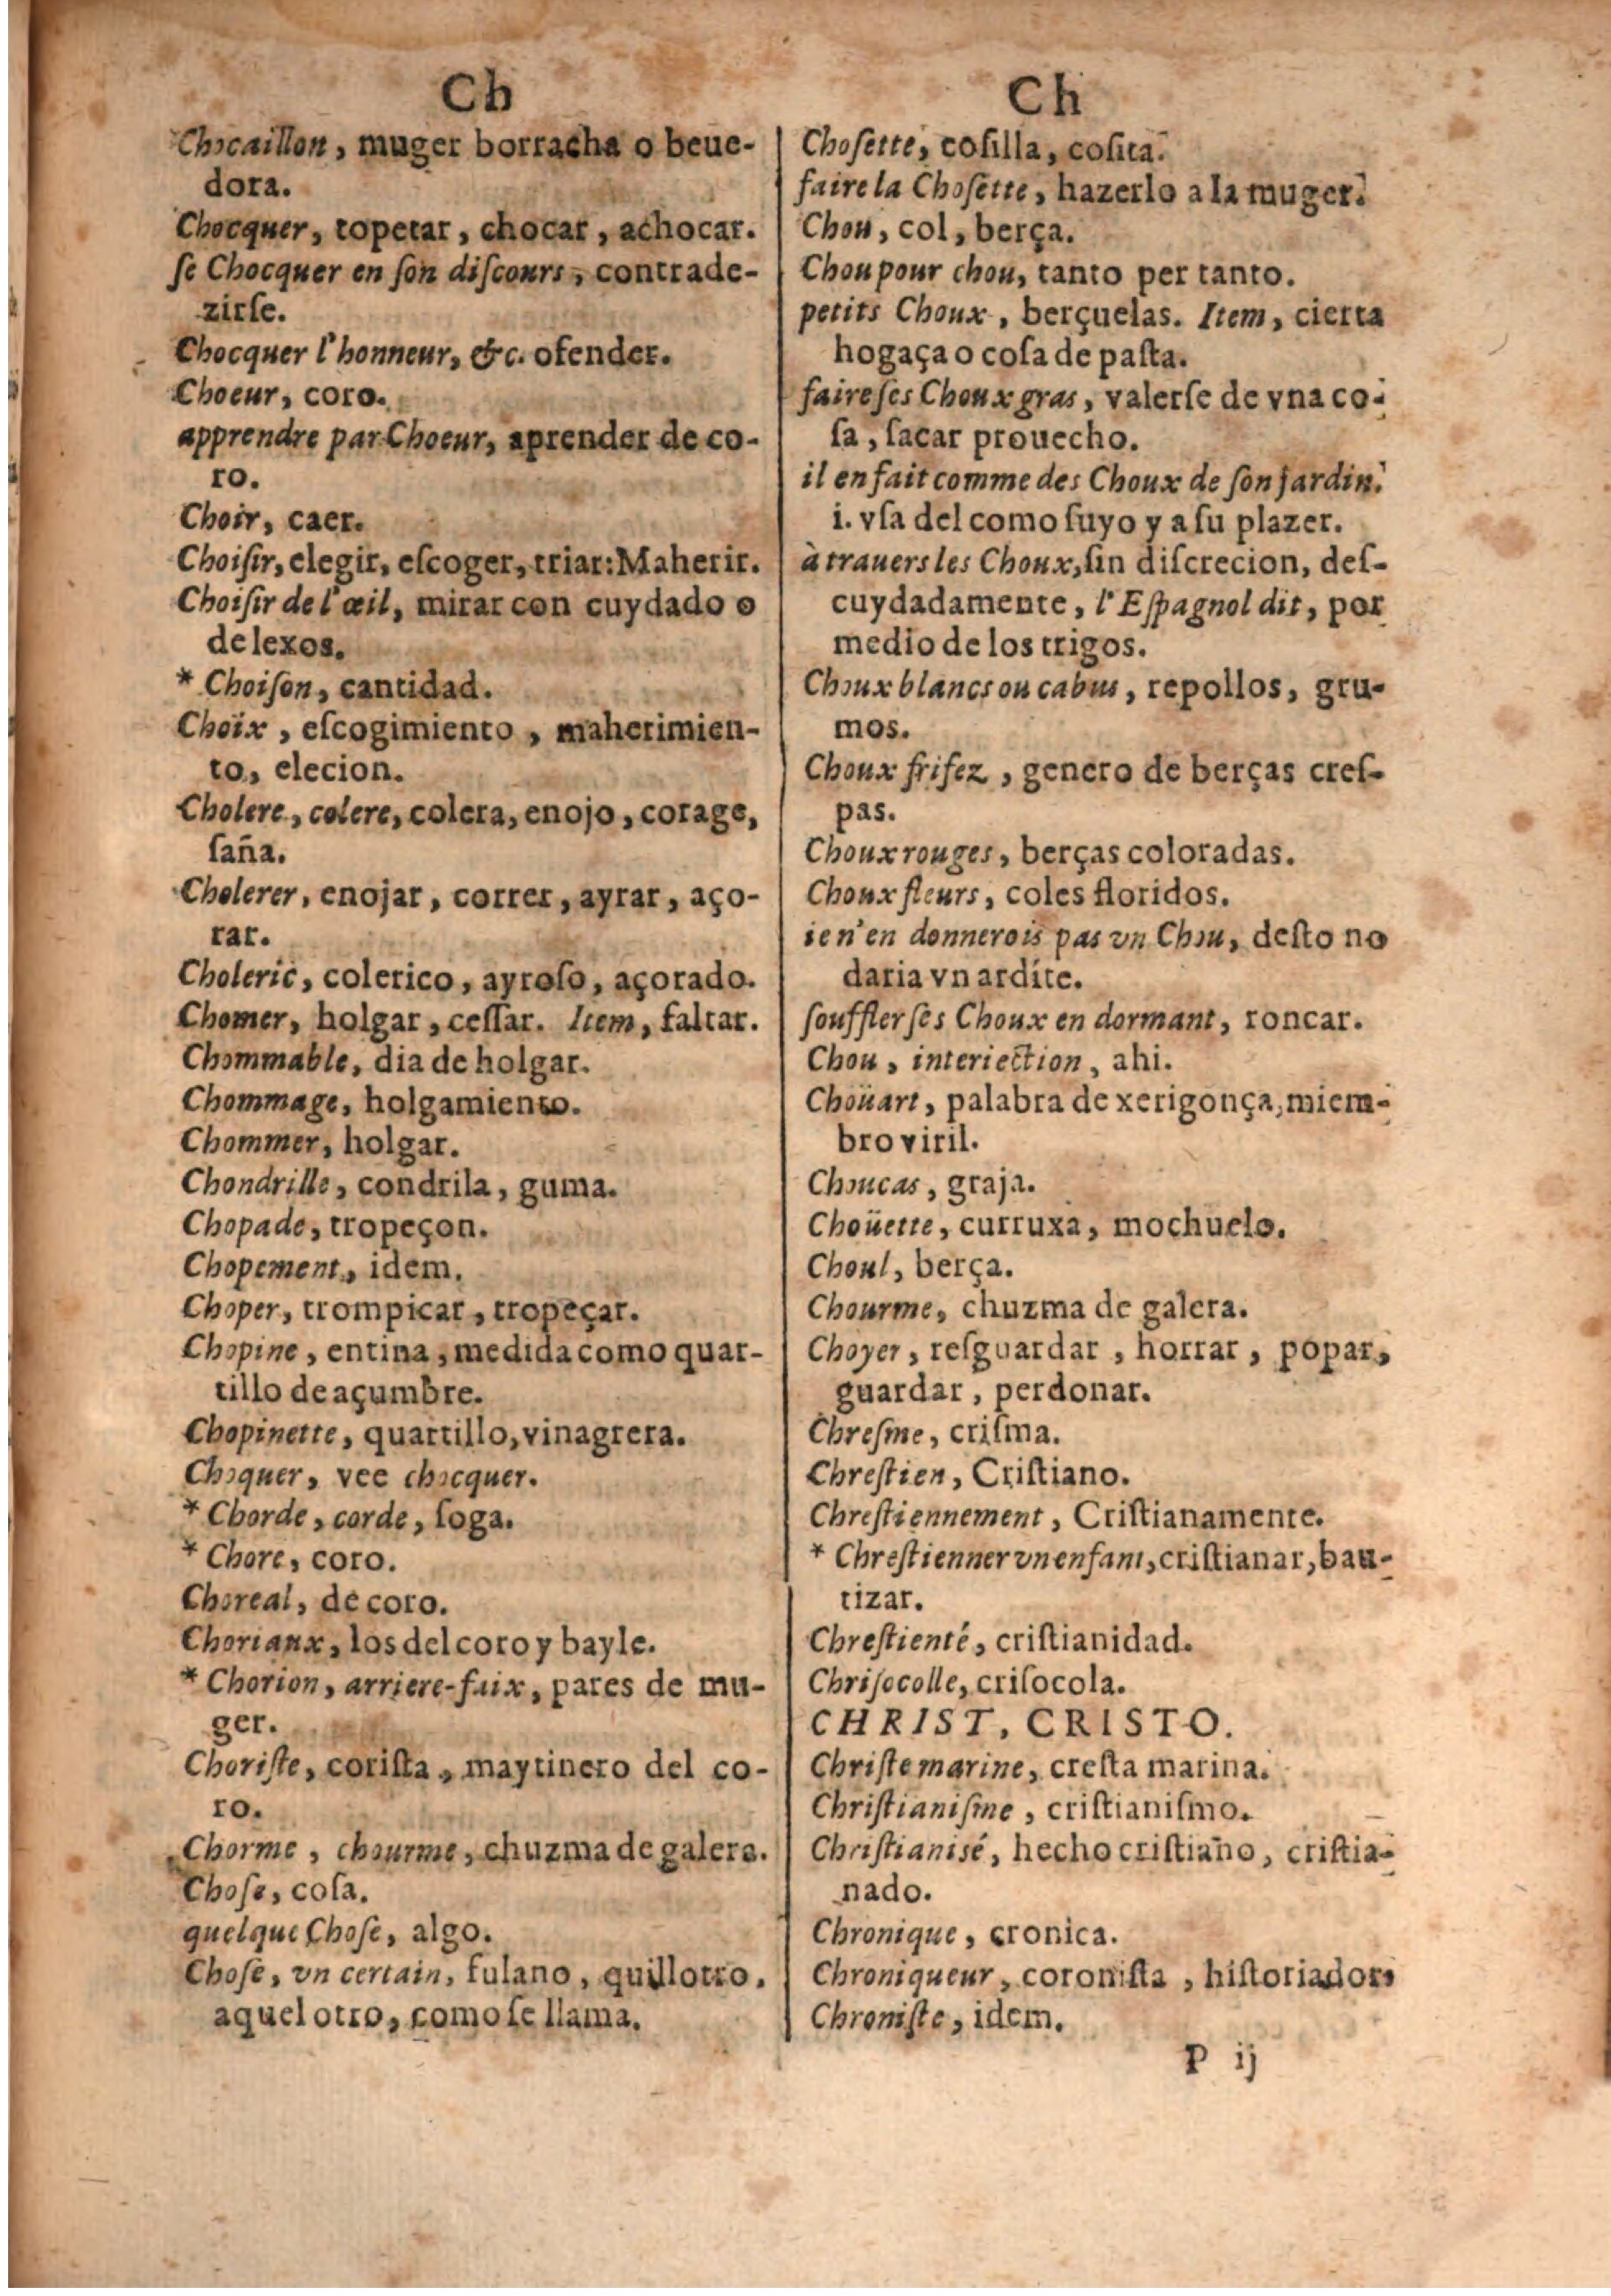 Ch
Chocaillon, muger borracha o beue-
dora.
Chocquer, topetar, chocar, achocar.
ſe Chocquer en ſon diſcours, contrade-
zirſe.
Chocquer l'honneur, &c. ofender.
Choeur, coro.
apprendre par Choeur, aprender de co-
ro.
Choir, caer.
Choiſir, elegir, eſcoger, triar: Maherir.
Choiſir de l'œil, mirar con cuydado o
de lexos.
* Choiſon, cantidad.
Choix, eſcogimiento, maherimien-
to, elecion.
Cholere, colere, colera, enojo, corage,
ſaña.
Cholerer, enojar, correr, ayrar, aço-
rar.
Choleric, colerico, ayroſo, açorado.
Chomer, holgar, ceſſar. Item, faltar.
Chommable, dia de holgar.
Chommage, holgamiento.
Chommer, holgar.
Chondrille, condrila, guma.
Chopade, tropeçon.
Chopement, idem.
Choper, trompicar, tropeçar.
Chopine, entina, medida como quar-
tillo de açumbre.
Chopinette, quartillo, vinagrera.
Choquer, vee chocquer.
* Chorde, corde, ſoga.
* Chore, coro.
Choreal, de coro.
Choriaux, los del coro y bayle.
* Chorion, arriere-faix, pares de mu-
ger.
Choriſte, coriſta, maytinero del co-
ro.
Chorme, chourme, chuzma de galera.
Choſe, coſa.
quelque Choſe, algo.
Choſe, vn certain, fulano, quillotro,
aquel otro, como ſe llama.
Ch
Choſette, coſilla, coſita.
faire la Choſette, hazerlo a la muger.
Chou, col, berça.
Chou pour chou, tanto per tanto.
petits Choux, berçuelas. Item, cierta
hogaça o coſa de paſta.
faire ſes Choux gras, valerſe de vna co-
ſa, ſacar prouecho.
il en fait comme des Choux de ſon jardin.
i. vſa del como ſuyo y a ſu plazer.
à trauers les Choux, ſin diſcrecion, deſ-
cuydadamente, l'Eſpagnol dit, por
medio de los trigos.
Choux blancs ou cabus, repollos, gru-
mos.
Choux friſez, genero de berças creſ-
pas.
Choux rouges, berças coloradas.
Choux fleurs, coles floridos.
ie n'en donnerois pas vn Chou, deſto no
daria vn ardite.
ſouffler ſes Choux en dormant, roncar.
Chou, interiection, ahi.
Choüart, palabra de xerigonça, miem-
bro viril.
Choucas, graja.
Choüette, curruxa, mochuelo.
Choul, berça.
Chourme, chuzma de galera.
Choyer, reſguardar, horrar, popar,
guardar, perdonar.
Chreſme, criſma.
Chreſtien, Criſtiano.
Chreſtiennement, Criſtianamente.
* Chreſtienner vn enfant, criſtianar, bau-
tizar.
Chreſtienté, criſtianidad.
Chriſocolle, criſocola.
CHRIST, CRISTO.
Chriſte marine, creſta marina.
Chriſtianiſme, criſtianiſmo.
Chriſtianisé, hecho criſtiano, criſtia-
nado.
Chronique, cronica.
Chroniqueur, coroniſta, hiſtoriador.
Chroniſte, idem.
P ij